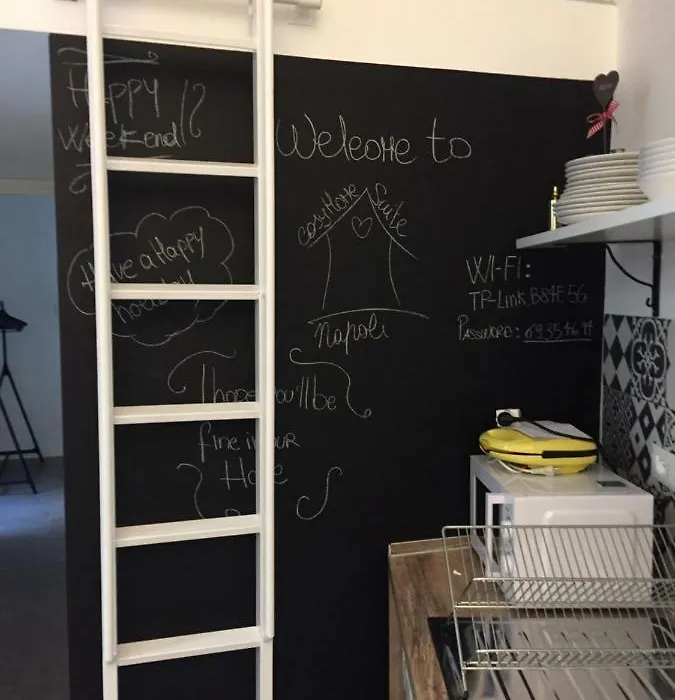 Happy
Weekend
Have a Happy
holiday!
Welcome to
Cosy Home Suite
Napoli
I hope you'll be
fine in our
Home
WI-FI:
TP-Link_B84F_5G
PASSWORD: